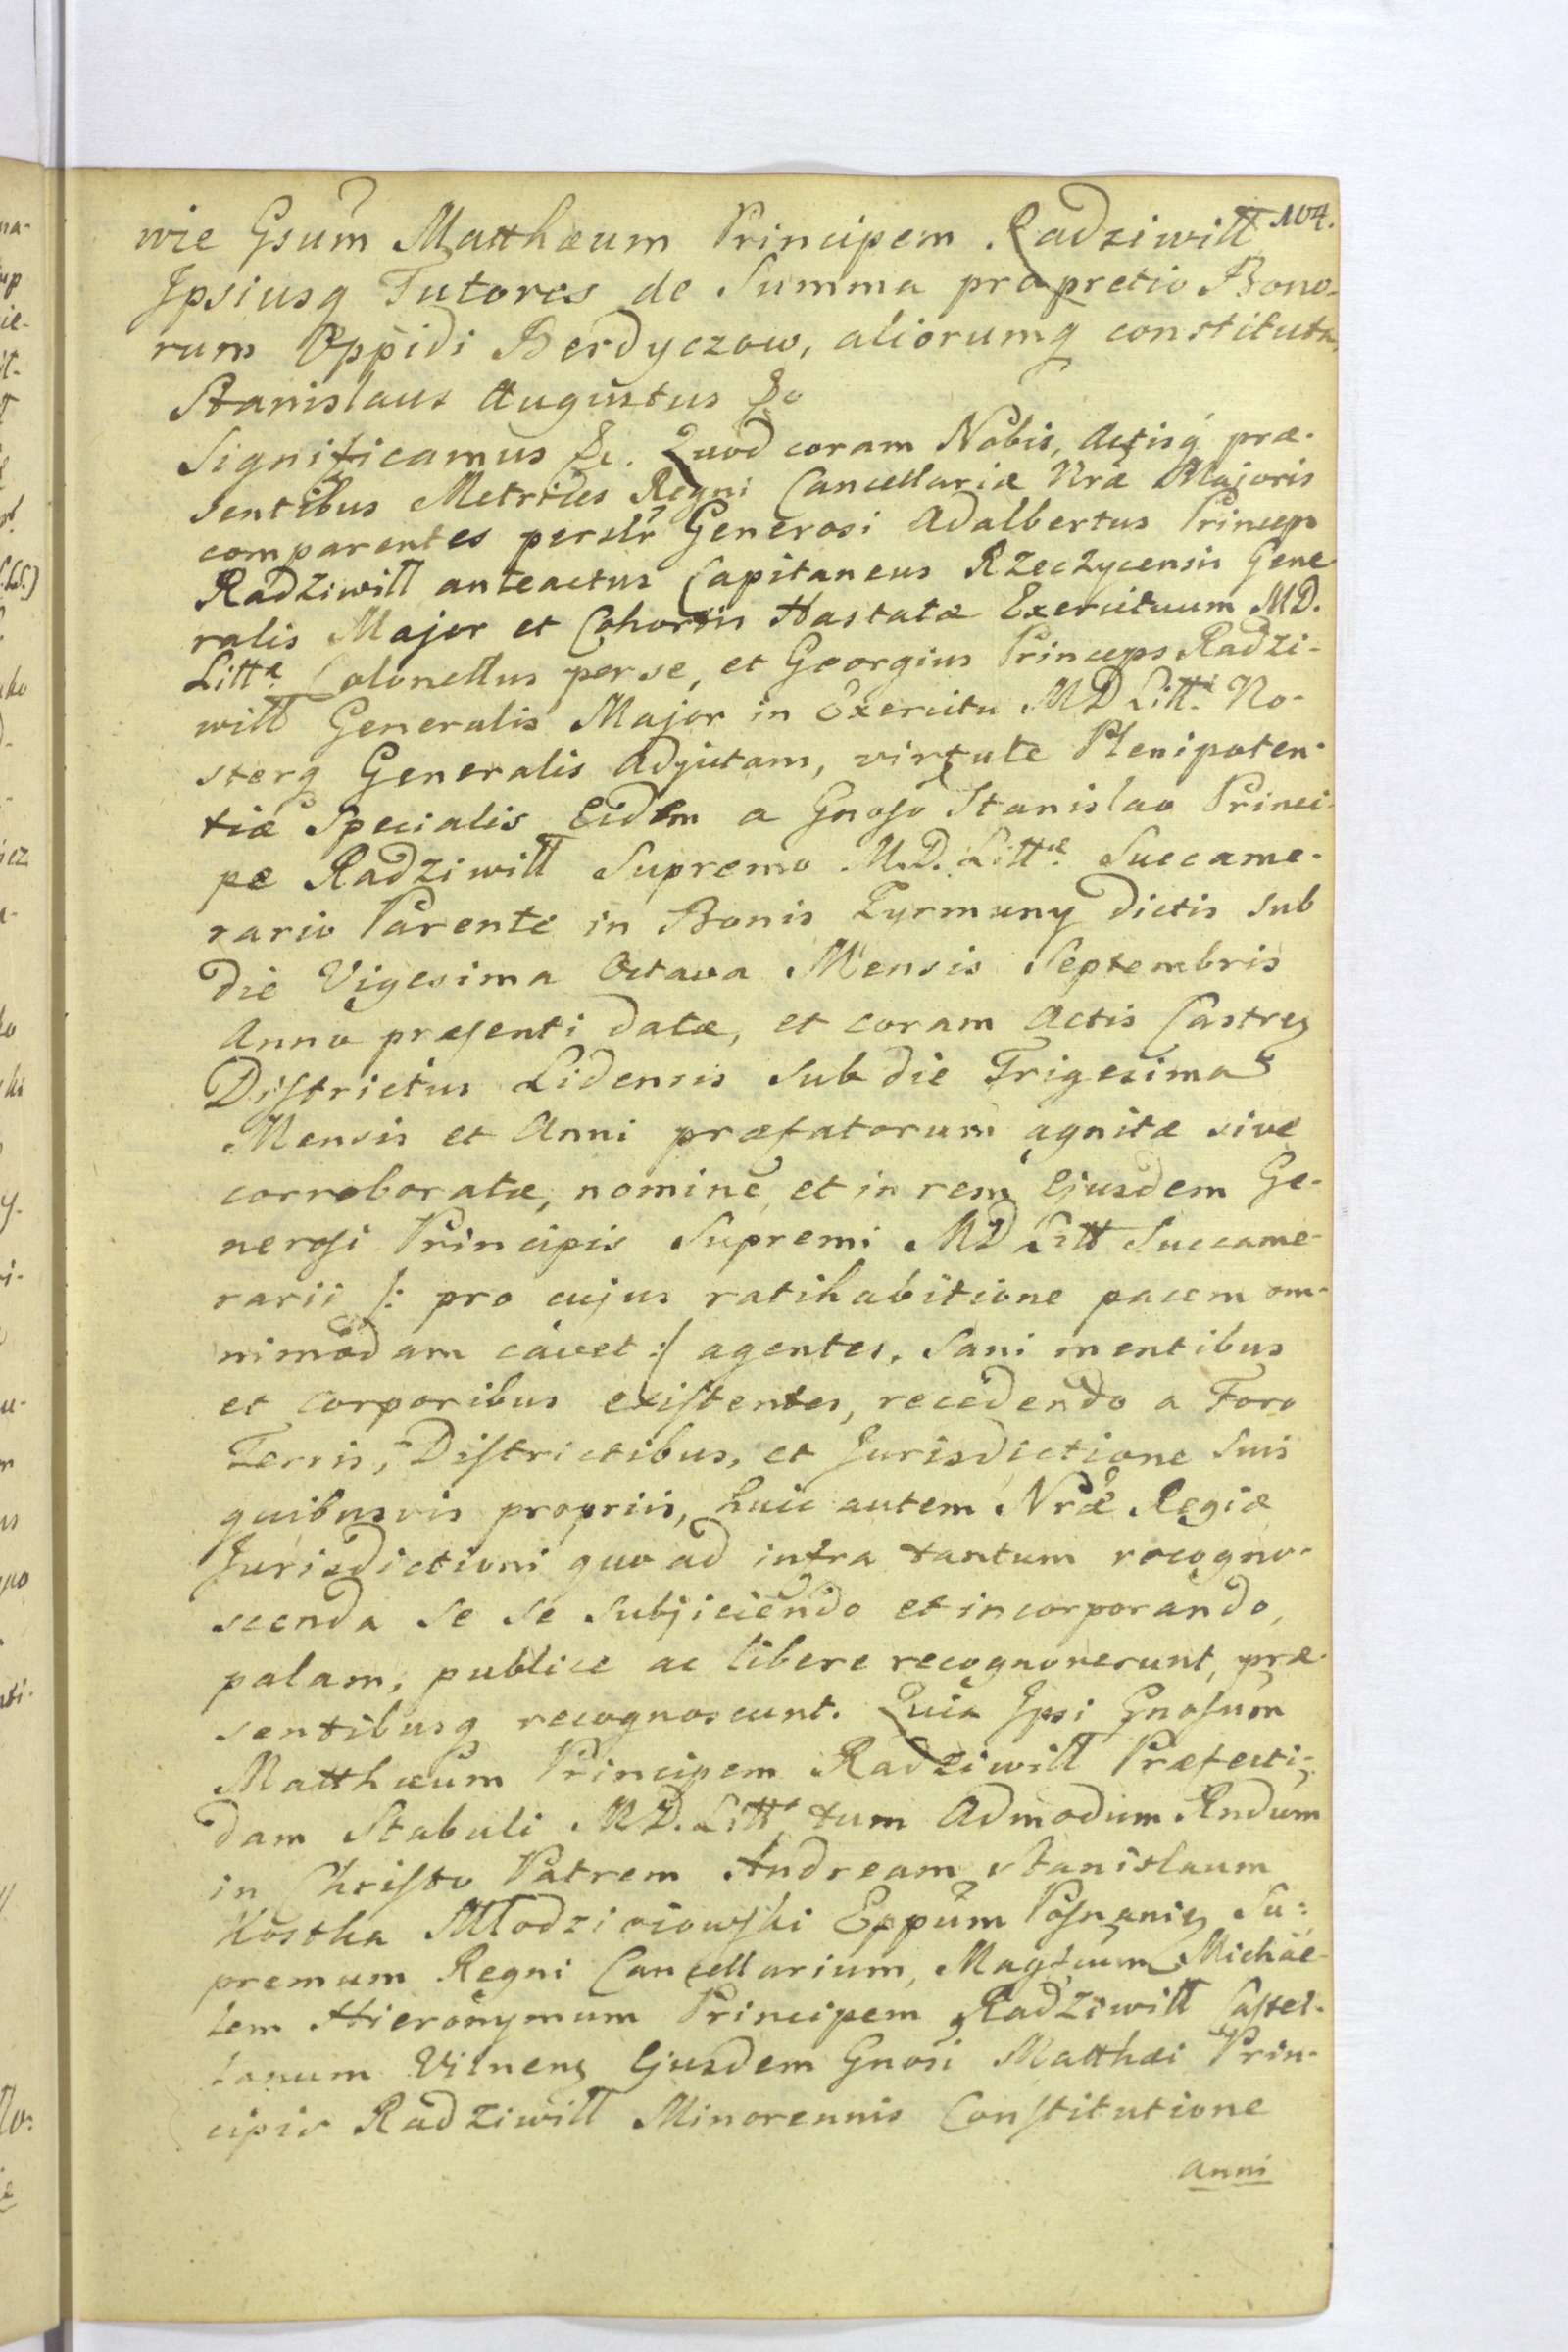 104.
wie Gsum Matthæum Principem Radziwill
Ipsiusq Tutores de Summa pro pretio Bono-
rum Oppidi Berdyczow, aliorumq constituta,
Stanislaus Augustus &c
Significamus &c. Quod coram Nobis, Actisq præ-
sentibus Metrices Regni Cancellariæ Nræ Majoris
comparentes perslr Generosi Adalbertus Princeps
Radziwill anteactus Capitaneus Rzeczycensis Gene
ralis Major et Cohortis Hastatæ Exercituum MD.
Littæ Colonellus per se, et Georgius Princeps Radzi-
will Generalis Major in Exercitu MD Litt. No-
sterq Generalis Adjutam, virtute Plenipoten-
tiæ Specialis Eidem a Gnoso Stanislao Princi-
pe Radziwill Supremo M.D. Littæ Succame-
rario Parente in Bonis Zyrmuny dictis sub
die Vigesima Octava Mensis Septembris
Anno præsenti datæ, et coram Actis Castren
Districtus Lidensis sub die Trigesima
Mensis et Anni præfatorum agnitæ sive
corroboratæ, nomine et in rem Ejusdem Ge-
nerosi Principis Supremi MD Litt Succame-
rarii /: pro cujus ratihabitione pacem om-
nimodam cavet :/ agentes, Sani mentibus
et corporibus existentes, recedendo a Foro
Terris, Districtibus, et Jurisdictione suis
quibusvis propriis, huic autem Nræ Regiæ
Jurisdictioni quo ad infra tantum recogno-
scenda se se subjiciendo et incorporando,
palam, publice ac libere recognoverunt, præ-
sentibusq recognoscunt. Quia Ipsi Gnosum
Matthæum Principem Radziwill Præfecti-
dam Stabuli MD. Litt, tum Admodum Rndum
in Christo Patrem Andream Stanislaum
Kostka Młodzieiowski Eppum Posnanien Su-
premum Regni Cancellarium, Magficum Michae-
lem Hieronymum Principem Radziwill Castel-
lanum Vilnens Ejusdem Gnosi Matthæi Prin-
cipis Radziwill Minorennis Constitutione
anni